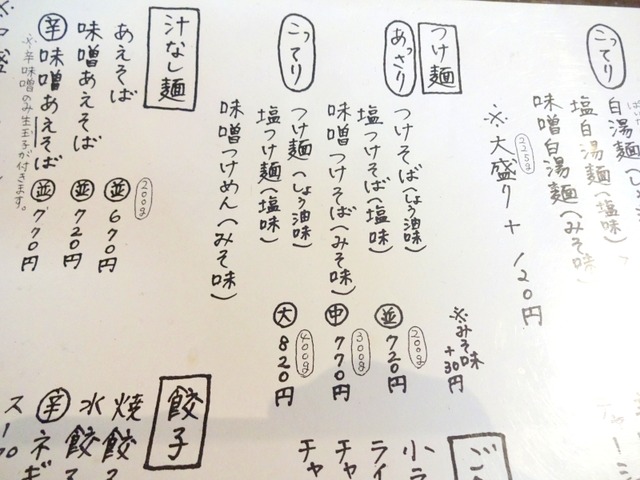 こってり
白湯麺(しょう油味)
塩白湯麺(塩味)
味噌白湯麺(みそ味)
※大盛り+120円
225g
つけ麺
あっさり
つけそば(しょう油味)
塩つけそば(塩味)
味噌つけそば(みそ味)
こってり
つけ麺(しょう油味)
塩つけ麺(塩味)
味噌つけめん(みそ味)
※みそ味+30円
並 200g 720円
中 300g 770円
大 400g 820円
汁なし麺
あえそば 並 200g 670円
味噌あえそば 並 720円
辛 味噌あえそば 並 770円
※辛味噌のみ生玉子が付きます。
ご
小ラ
ライ
チャ
チャ
餃子
焼餃子
水餃子
辛 ネギ
スープ